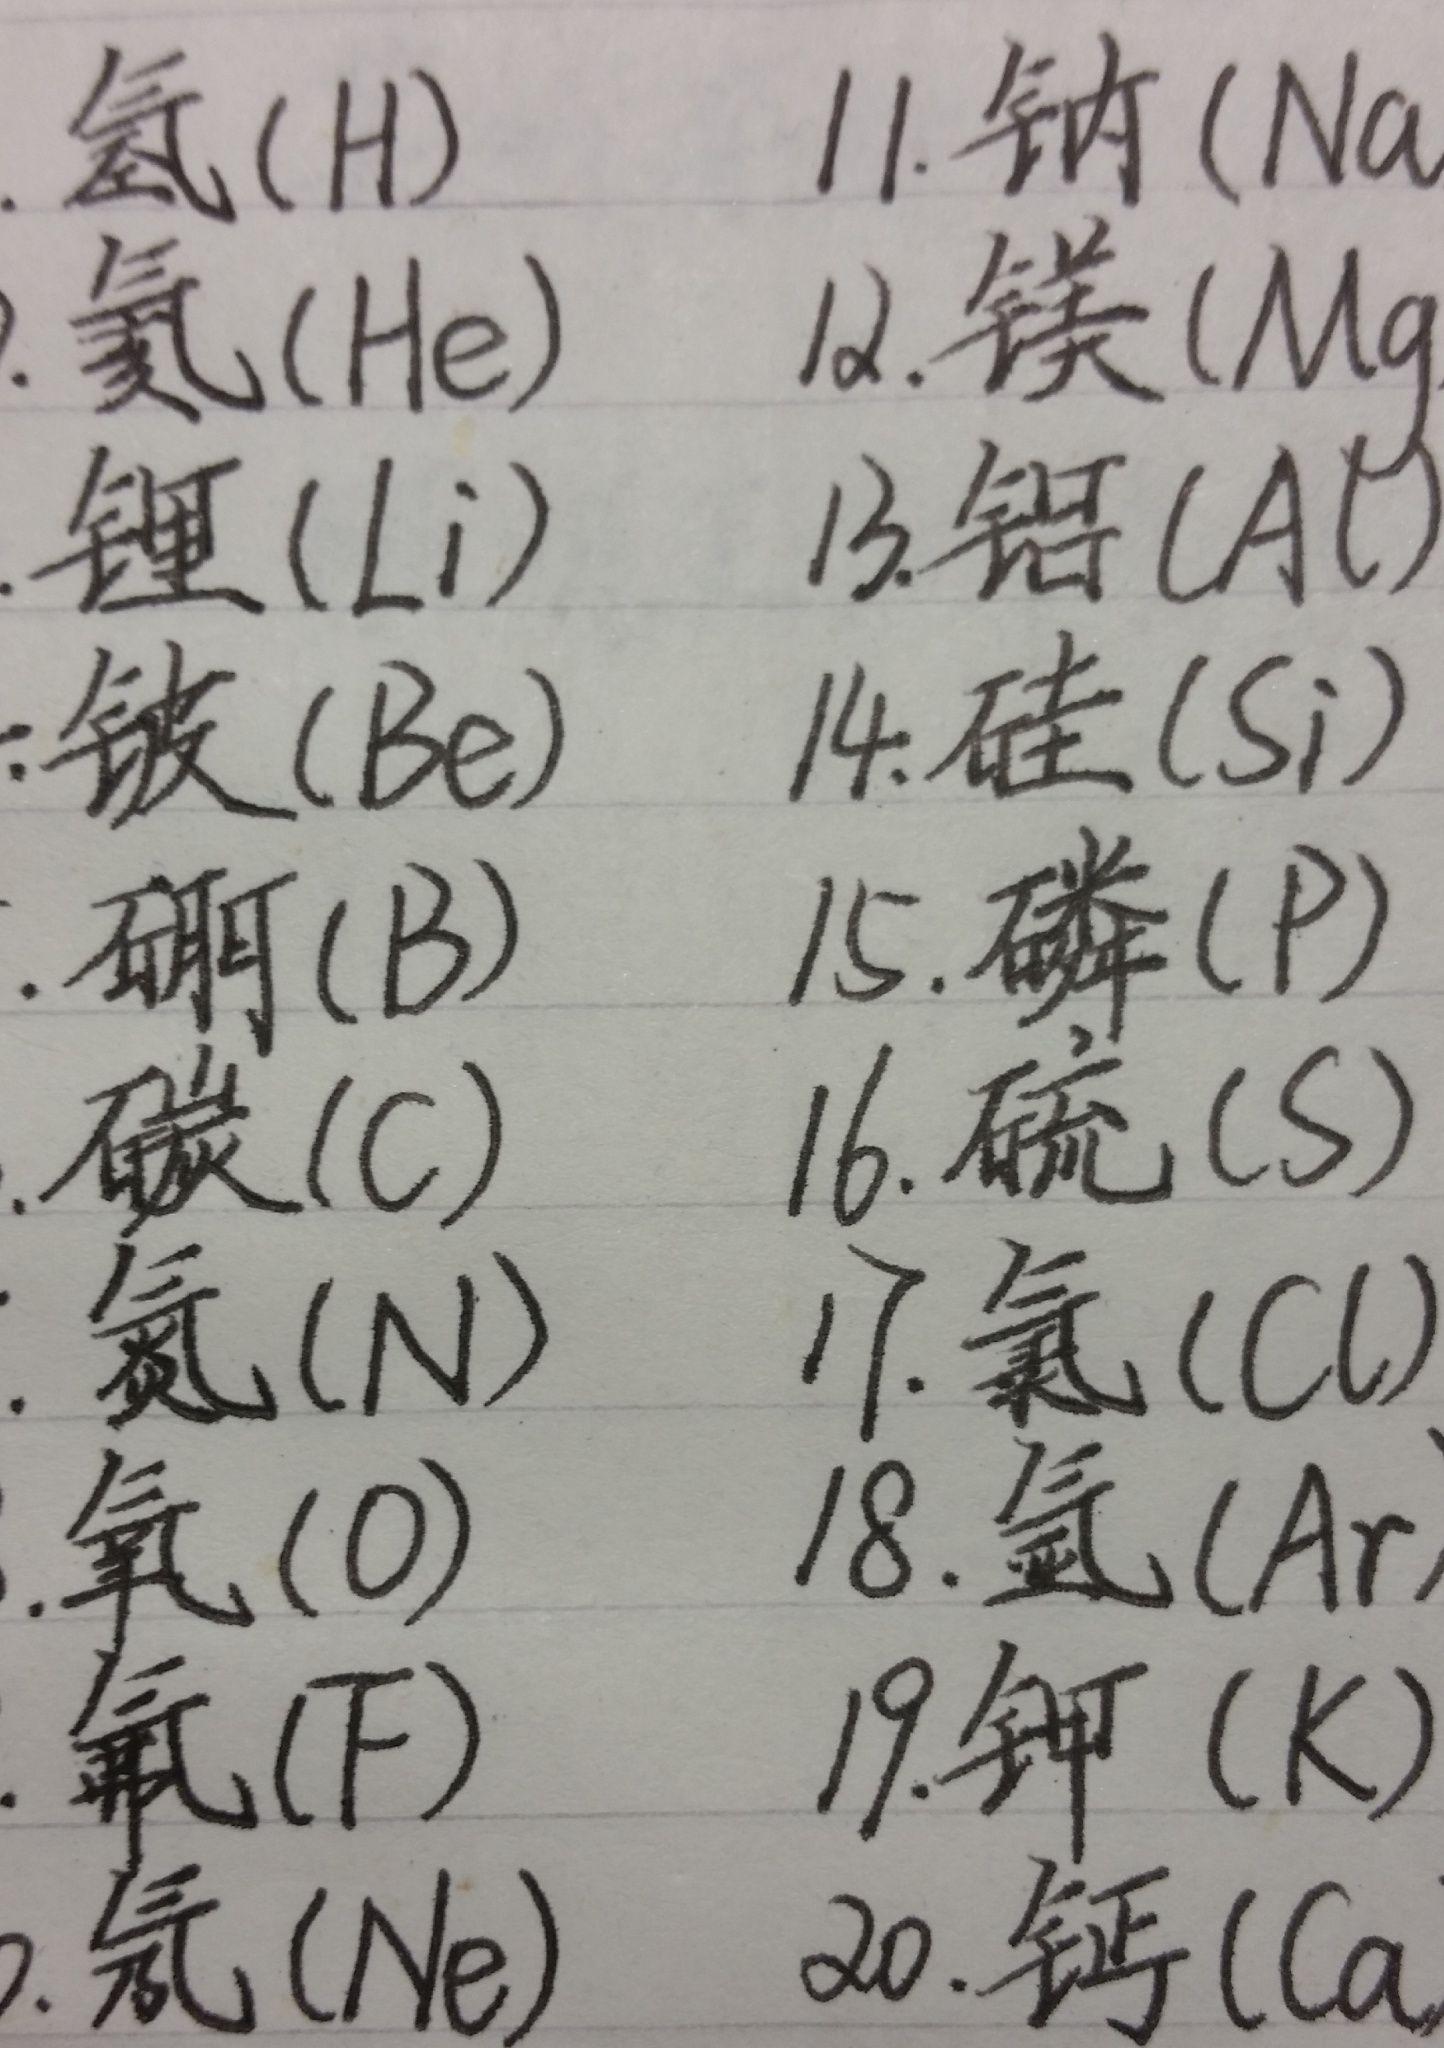 . 氢(H) 11. 钠(Na
. 氦(He) 12. 镁(Mg
. 锂(Li) 13. 铝(Al)
: 铍(Be) 14. 硅(Si)
. 硼(B) 15. 磷(P)
. 碳(C) 16. 硫(S)
. 氮(N) 17. 氯(Cl)
. 氧(O) 18. 氩(Ar)
. 氟(F) 19. 钾(K)
. 氖(Ne) 20. 钙(Ca)